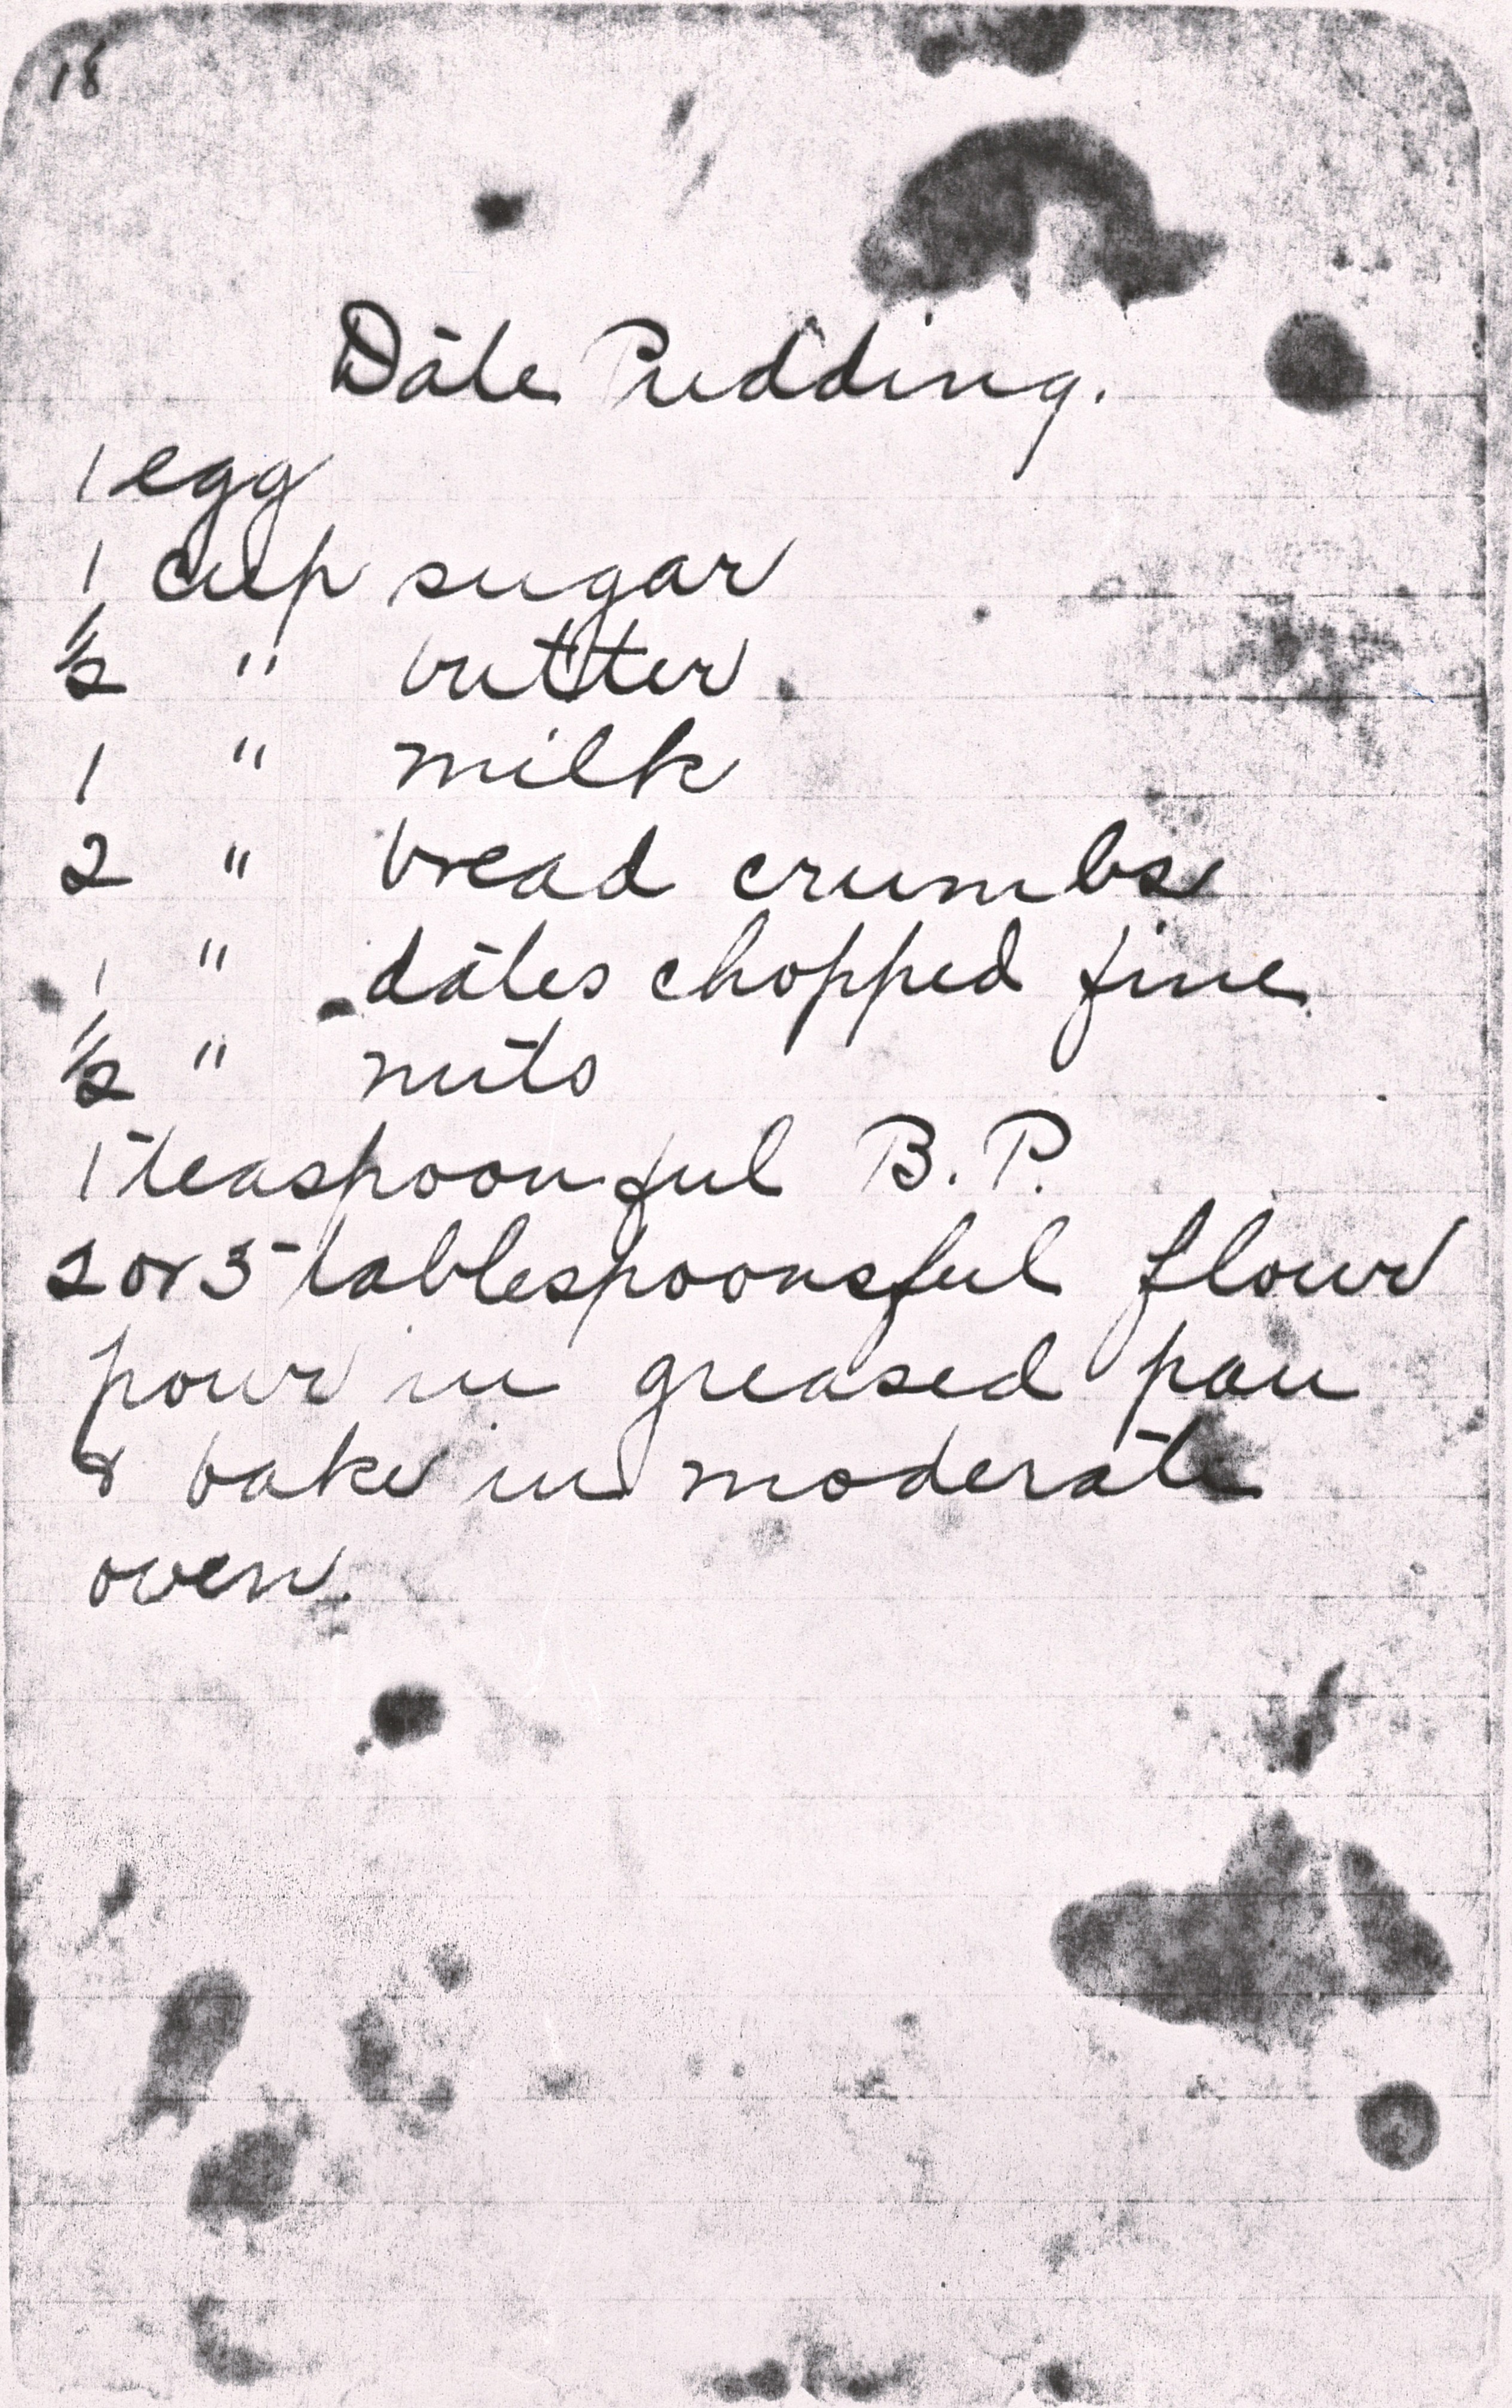 18
Date Pudding.
1 egg
1 cup sugar
1/2 " butter
1 " milk
2 " bread crumbs
1 " dates chopped fine
1/2 " nuts
1 teaspoonful B.P.
2 or 3 tablespoonsful flour
pour in greased pan
& bake in moderate
oven.